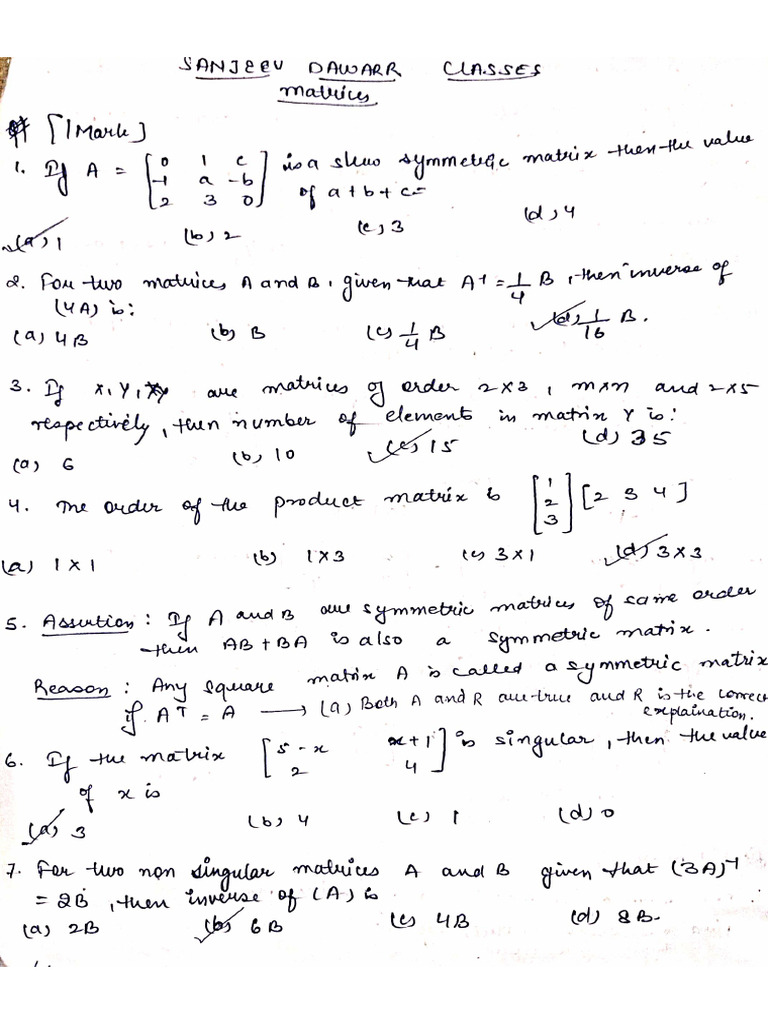 SANJEEV DAWARR CLASSES
Matrices
[1 Mark]
1. If A = [0 1 c; -1 a -b; 2 3 0] is a skew symmetric matrix then the value
of a + b + c =
(a) 1 (b) 2 (c) 3 (d) 4
2. For two matrices A and B, given that A⁻¹ = 1/4 B, then inverse of
(4A) is:
(a) 4B (b) B (c) 1/4 B (d) 1/16 B.
3. If X, Y, XY are matrices of order 2×3, m×n and 2×5
respectively, then number of elements in matrix Y is:
(a) 6 (b) 10 (c) 15 (d) 35
4. The order of the product matrix is [1; 2; 3] [2 3 4]
(a) 1×1 (b) 1×3 (c) 3×1 (d) 3×3
5. Assertion: If A and B are symmetric matrices of same order
then AB + BA is also a symmetric matrix.
Reason: Any square matrix A is called a symmetric matrix
if Aᵀ = A → (a) Both A and R are true and R is the correct
explaination.
6. If the matrix [5-x x+1; 2 4] is singular, then the value
of x is
(a) 3 (b) 4 (c) 1 (d) 0
7. For two non singular matrices A and B given that (3A)⁻¹
= 2B, then inverse of (A) is
(a) 2B (b) 6B (c) 4B (d) 8B.